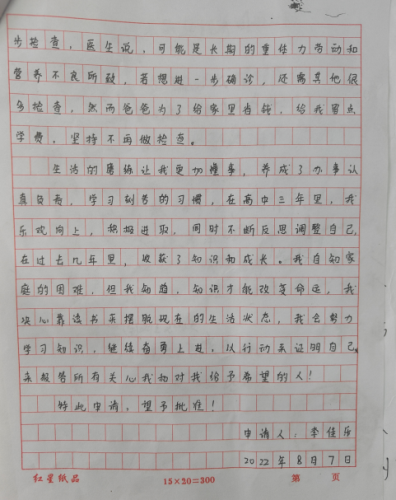 步检查，医生说，可能是长期的重体力劳动和
营养不良所致，若想进一步确诊，还需其他很
多检查，然而爸爸为了给家里省钱，给我留点
学费，坚持不再做检查。
生活的磨练让我更加懂事，养成了办事认
真负责，学习刻苦的习惯，在高中三年里，我
乐观向上，积极进取，同时不断反思调整自己，
在过去几年里，收获了知识和成长。我自知家
庭的困难，但我知道，知识才能改变命运，我
决心靠读书来摆脱现在的生活状态，我会努力
学习知识，继续奋勇上进，以行动来证明自己，
来报答所有关心我和对我给予希望的人！
特此申请，望予批准！
申请人：李佳乐
2022年8月7日
红星纸品 15×20=300 第 页